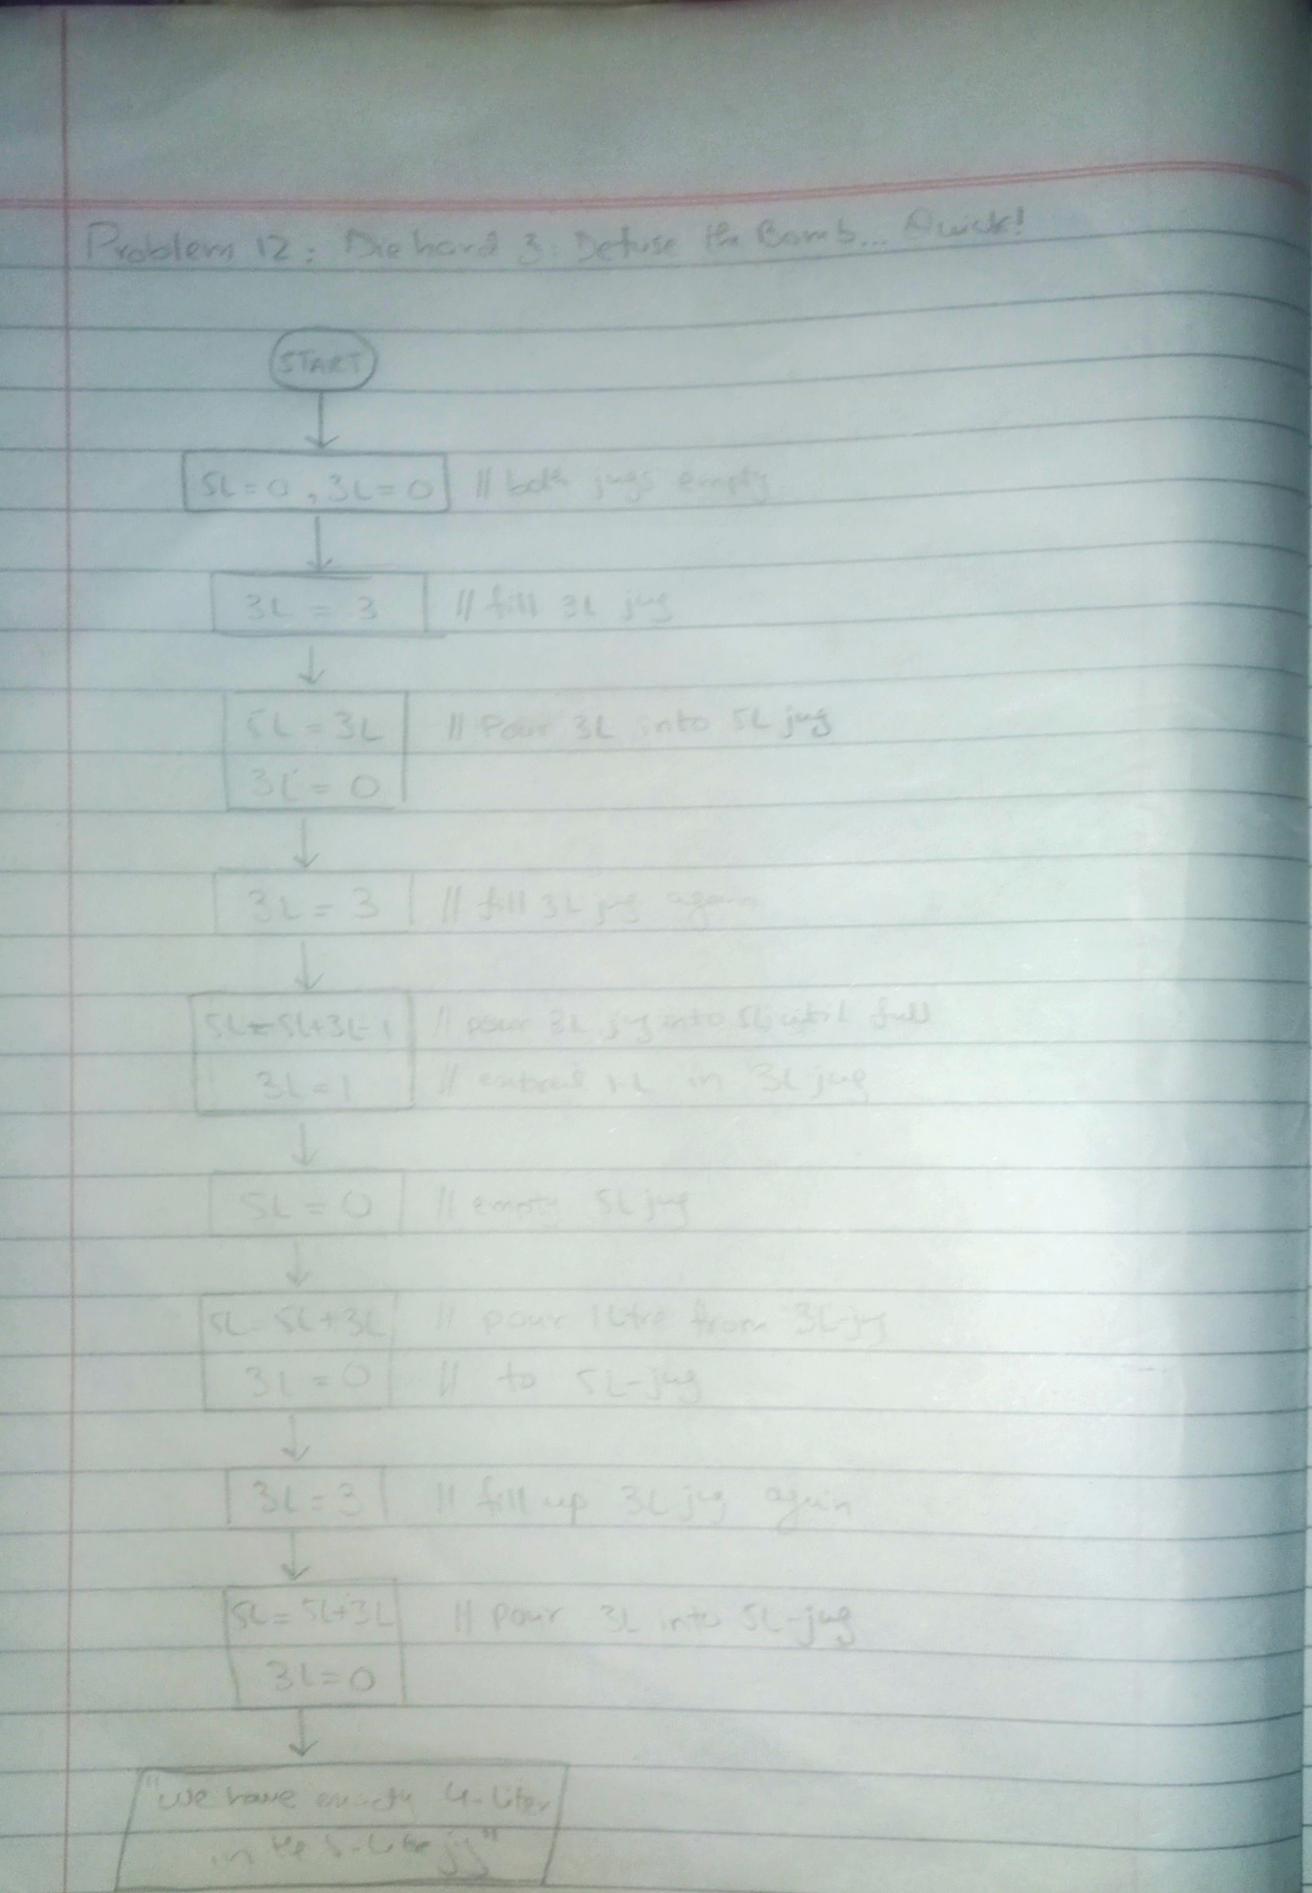 Problem 12: Die hard 3: Defuse the Bomb... Quick!
START
5L=0, 3L=0 // both jugs empty
3L = 3 // fill 3L jug
5L = 3L // Pour 3L into 5L jug
3L = 0
3L = 3 // fill 3L jug again
5L=5L+3L-1 // pour 3L jug into 5L until full
3L=1 // 1L in 3L jug
5L = 0 // empty 5L jug
5L=5L+3L // pour 1 litre from 3L-jug
3L = 0 // to 5L-jug
3L = 3 // fill up 3L jug again
5L = 5L+3L // Pour 3L into 5L-jug
3L=0
"We have exactly 4-Liter
in the 5-Litre jug"